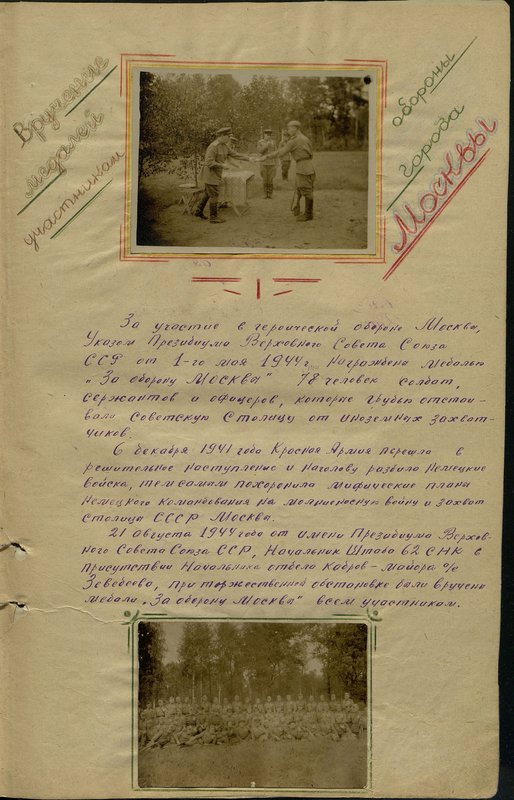 Вручение
медалей
участникам
обороны
города
Москвы
За участие в героической обороне Москвы,
Указом Президиума Верховного Совета Союза
ССР от 1-го мая 1944 г. награждена медалью
„За оборону Москвы" 78 человек солдат,
сержантов и офицеров, которые грудью отстаи-
вали Советскую Столицу от иноземных захват-
чиков.
6 декабря 1941 года Красная Армия перешла в
решительное наступление и наголову разбила немецкие
войска, тем самым похоронила мифические планы
Немецкого командования на молниеносную войну и захват
столицы СССР Москва.
21 августа 1944 года от имени Президиума Верхов-
ного Совета Союза ССР, Начальник Штаба 62 СНК в
присутствии Начальника отдела Кадров - майора а/с
при торжественной обстановке были вручены
медали „За оборону Москвы" всем участникам.